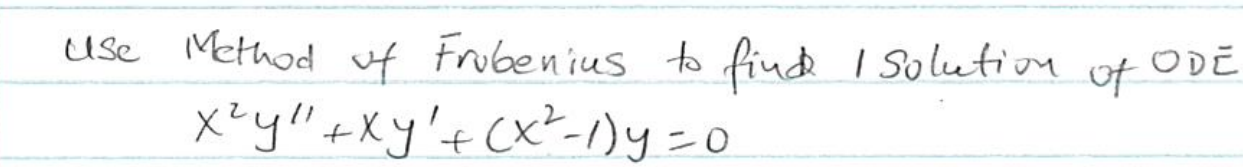 Use Method of Frobenius to find 1 Solution of ODE
x²y'' + xy' + (x²-1)y = 0